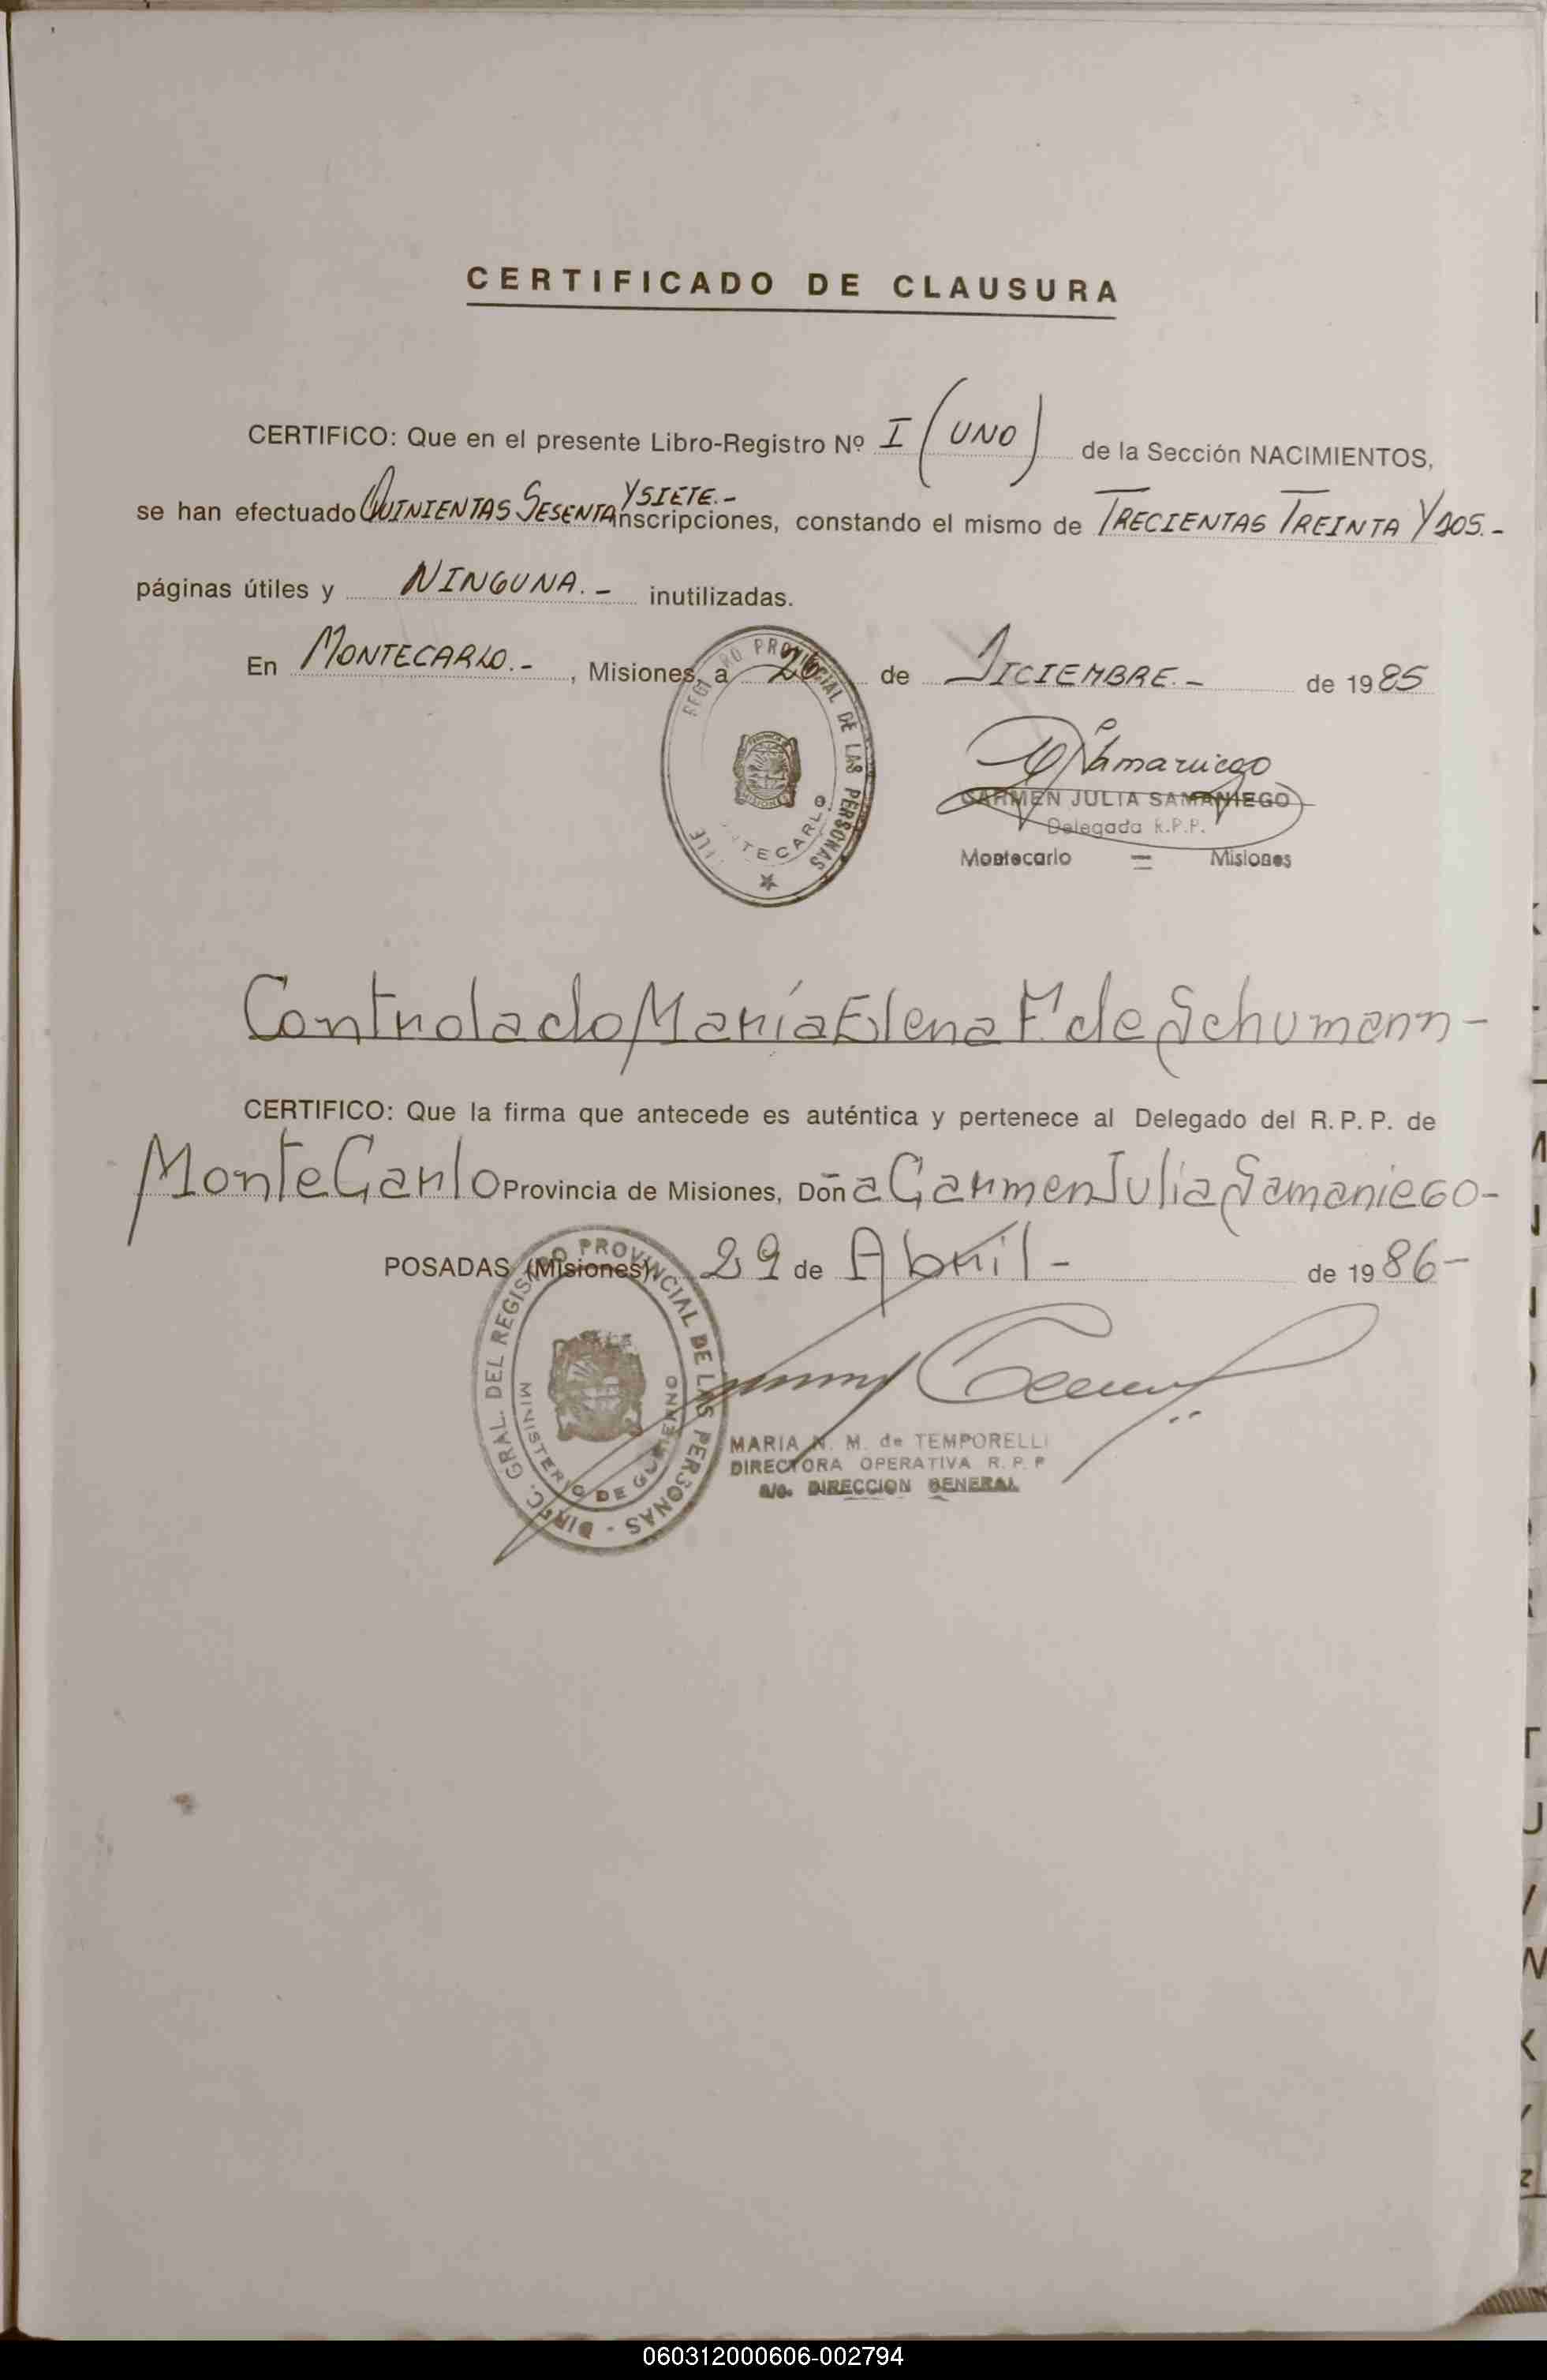 CERTIFICADO DE CLAUSURA
CERTIFICO: Que en el presente Libro-Registro Nº I (UNO) de la Sección NACIMIENTOS,
se han efectuado QUINIENTAS SESENTA Y SIETE.- inscripciones, constando el mismo de TRECIENTAS TREINTA Y DOS.-
páginas útiles y NINGUNA.- inutilizadas.
En MONTECARLO.-, Misiones, a 26 de DICIEMBRE.- de 1985
REGI RO PROVINCIAL DE LAS PERSONAS
MISIONES
TECARLO
Samaniego
CARMEN JULIA SAMANIEGO
Delegada R.P.P.
Montecarlo = Misiones
Controlado María Elena F. de Schumann-
CERTIFICO: Que la firma que antecede es auténtica y pertenece al Delegado del R.P.P. de
MonteCarlo Provincia de Misiones, Doña Carmen Julia Samaniego-
POSADAS (Misiones), 29 de Abril- de 1986-
DIREC. GRAL. DEL REGISTRO PROVINCIAL DE LAS PERSONAS -
MINISTERIO DE GOBIERNO
MARIA N. M. de TEMPORELLI
DIRECTORA OPERATIVA R. P. P
a/c. DIRECCION GENERAL
T
U
V
W
X
Y
Z
060312000606-002794